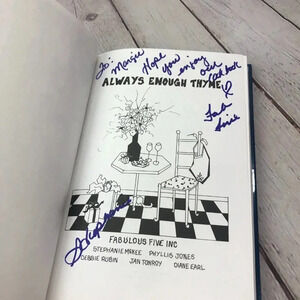 To: Margie
Hope
you enjoy
our
book
ALWAYS ENOUGH THYME
Stephanie
FABULOUS FIVE INC
STEPHANIE MCKEE PHYLLIS JONES
DEBBIE RUBIN JAN TONROY DIANE EARL